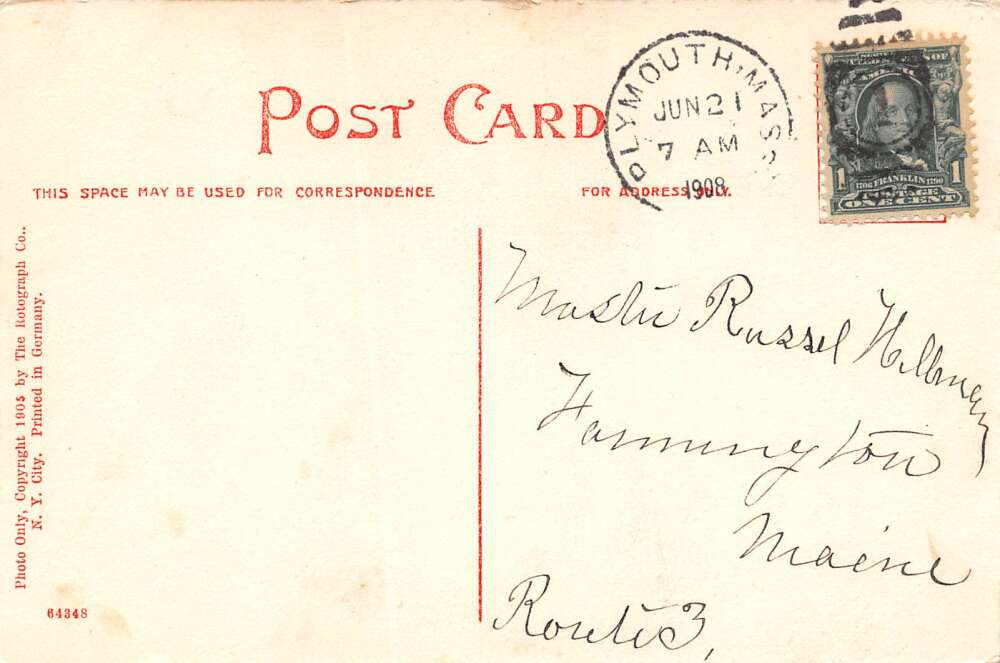 POST CARD
THIS SPACE MAY BE USED FOR CORRESPONDENCE
FOR ADDRESS ONLY.
PLYMOUTH, MASS
JUN 21
7 AM
1908
1 1706 FRANKLIN 1790 1
POSTAGE
ONE CENT
Master Russel
Farmington
Maine
Route 3,
Photo Only, Copyright 1905 by The Rotograph Co.,
N. Y. City. Printed in Germany.
64348